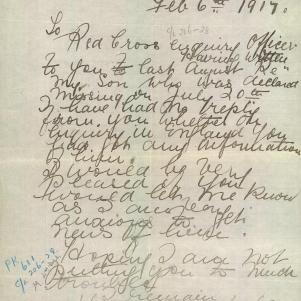 Feb 6th 1917.
c/o 206-28
To
Red Cross Enquiry Officer
Having written
to you last August "Re"
my Son who was declared
Missing on July 20th
I have had no reply
from you whether on
Enquiry in England you
had got any information
of him.
I would be very
Pleased if you
would let me know
as I am very
anxious to get
news of him.
Hoping I am not
Putting you to much
trouble
I remain